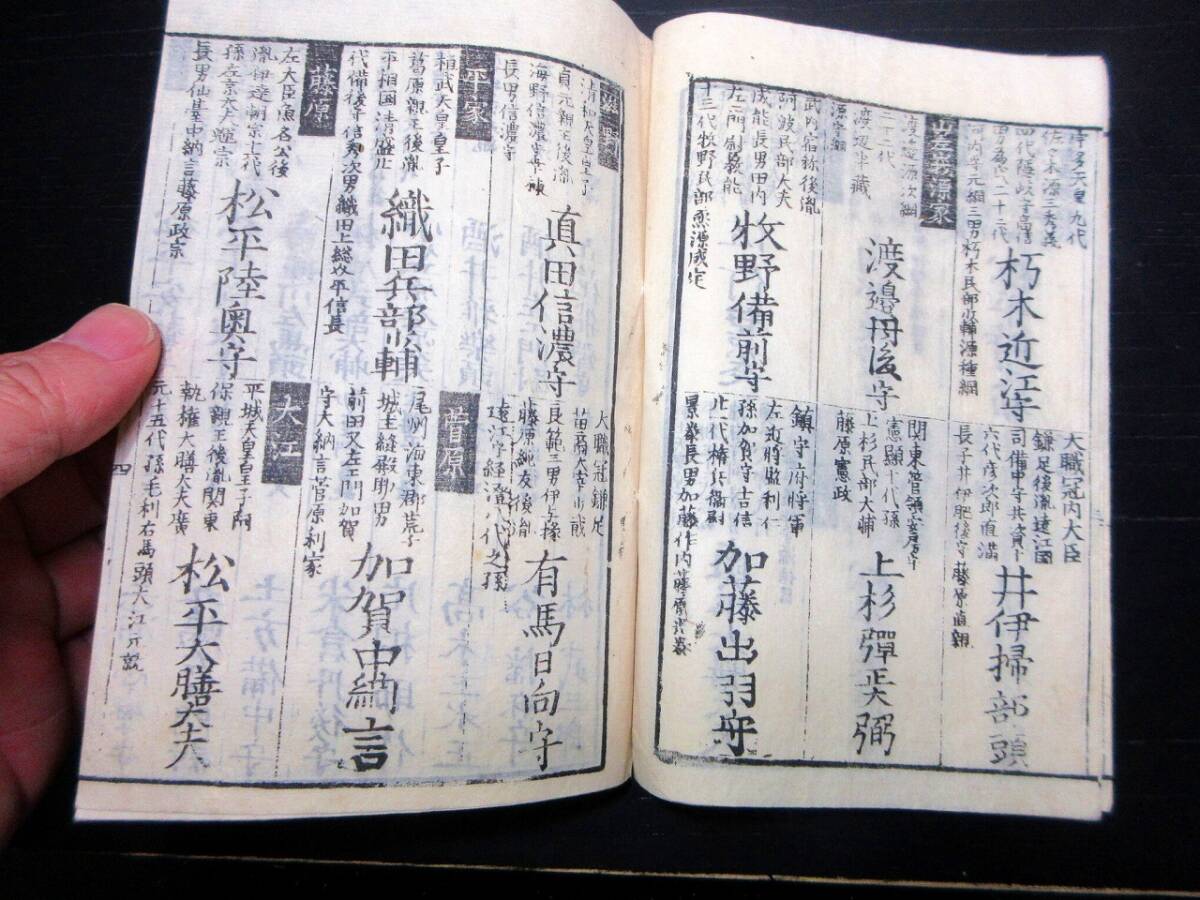 宇多天皇九代
佐々木源三秀義
四代隠岐守高信
男為氏ニ十三代
河内守元綱三男朽木民部少輔源種綱
朽木近江守
嵯峨源家
渡邉源次綱
二十二代
渡邉半蔵
源守綱
渡邉丹後守
武内宿祢後胤
阿波民部大夫
成能長男田内
左エ門尉義能
十三代牧野民部丞源成定
牧野備前守
大職冠内大臣
鎌足後胤遠江國
司備中守共資十
六代彦次郎直満
長子井伊肥後守藤原直親
井伊掃部頭
関東管領安房守
憲顕十代孫
上杉民部大輔
藤原憲政
上杉彈正大弼
鎮守府将軍
左近将監利仁
孫加賀守吉信
廿一代権兵衛尉
景泰長男加藤作内藤原光泰
加藤出羽守
海野
清和天皇皇子
貞元親王後胤
海野信濃守幸禎
長男信濃守
真田信濃守
平家
桓武天皇皇子
葛原親王後胤
平相国清盛廿
代備後守信秀次男織田上総介平信長
織田兵部少輔
藤原
左大臣魚名公後
胤伊達朝宗十六代
孫左京大夫輝宗
長男仙基中納言藤原政宗
松平陸奥守
大職冠鎌足
苗裔大宰少貳
良範三男伊与掾
藤原純友後胤
遠江守経澄八代之孫
有馬日向守
菅原
尾州海東郡荒子
城主縫殿助男
前田又左エ門加賀
守大納言菅原利家
加賀中納言
大江
平城天皇皇子阿
保親王後胤関東
執権大膳大夫廣
元十五代孫毛利右馬頭大江元就
松平大膳大夫
四